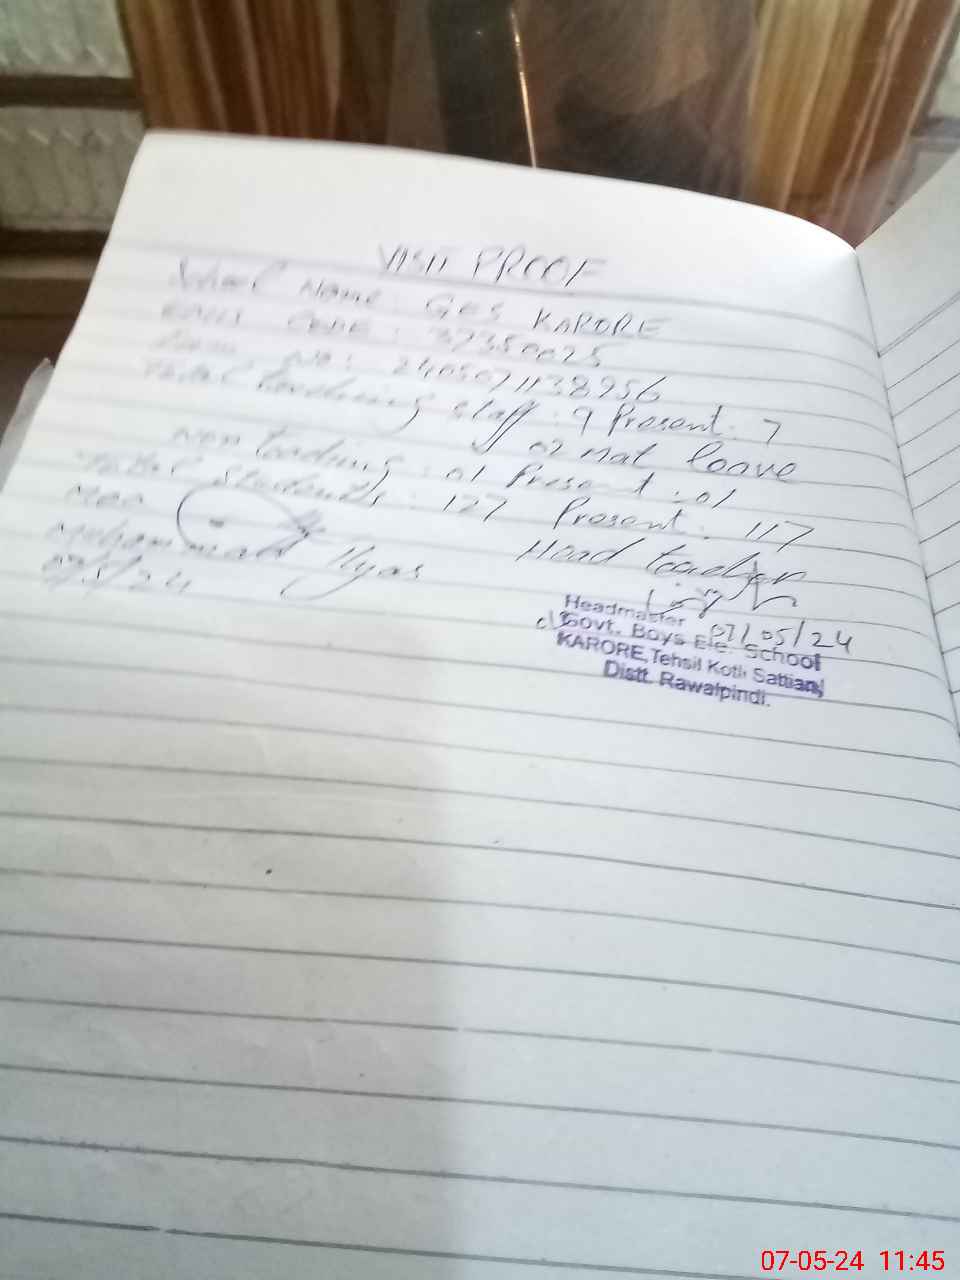 VISIT PROOF
School Name: GES KARORE
EMIS CODE: 37350025
No: 2405071138956
Total teaching staff: 9 Present: 7
02 mat leave
Non teaching: 01 Present: 01
Total Students: 127 Present: 117
Mea Head teacher
Muhammad Ilyas
07/5/24
07/05/24
Headmaster
Govt. Boys Ele. School
KARORE, Tehsil Kotli Sattian,
Distt. Rawalpindi.
07-05-24 11:45